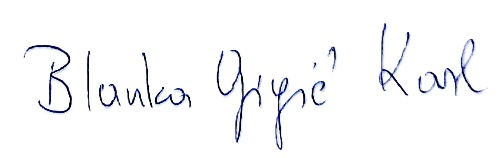 Blanka Gigić Karl